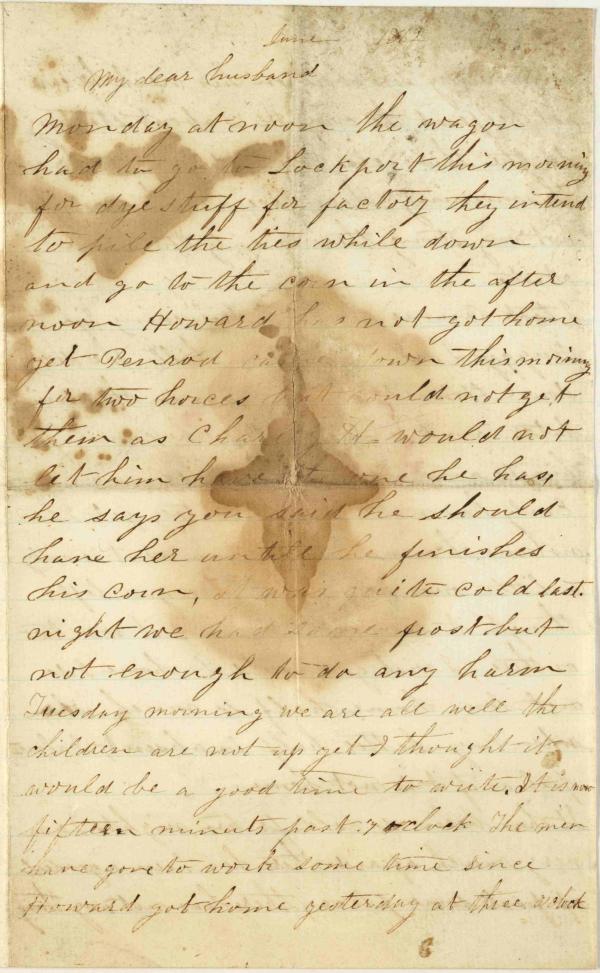 June
My dear husband
Monday at noon the wagon
had to go to Lockport this morning
for dye stuff for factory they intend
to pile the ties while down
and go to the corn in the after
noon Howard has not got home
yet Penrod came down this morning
for two horces but could not get
them as Charley H would not
let him have the one he has,
he says you said he should
have her untill he finishes
his corn, it was quite cold last
night we had some frost but
not enough to do any harm
Tuesday morning we are all well the
children are not up yet I thought it
would be a good time to write. It is now
fifteen minuts past 7 oclock The men
have gone to work some time since
Howard got home yesterday at three oclock